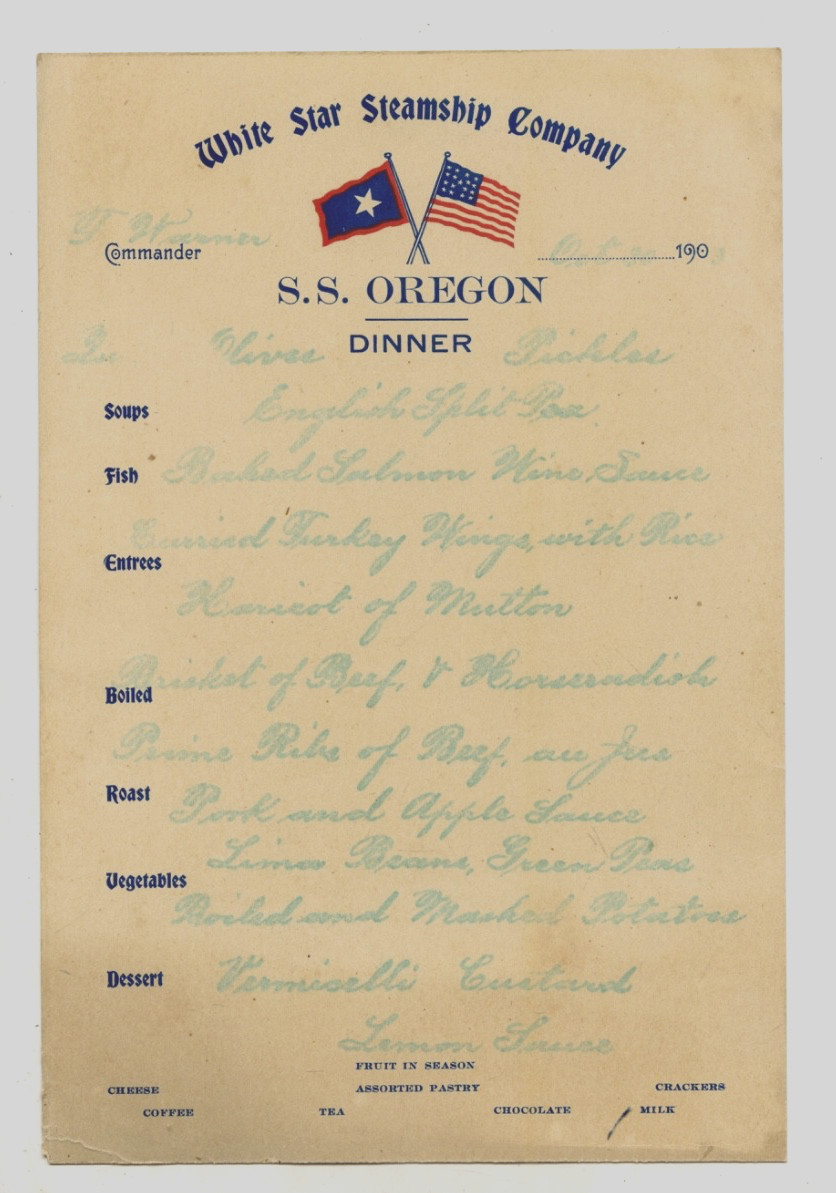 White Star Steamship Company
F. Warner
Commander
Oct 190
S.S. OREGON
DINNER
Olives Pickles
Soups English Split Pea
Fish Baked Salmon Wine Sauce
Curried Turkey Wings, with Rice
Entrees
Haricot of Mutton
Brisket of Beef, & Horseradish
Boiled
Prime Ribs of Beef, au Jus
Roast Pork and Apple Sauce
Lima Beans, Green Peas
Vegetables
Boiled and Mashed Potatoes
Dessert Vermicelli Custard
Lemon Sauce
FRUIT IN SEASON
CHEESE ASSORTED PASTRY CRACKERS
COFFEE TEA CHOCOLATE MILK